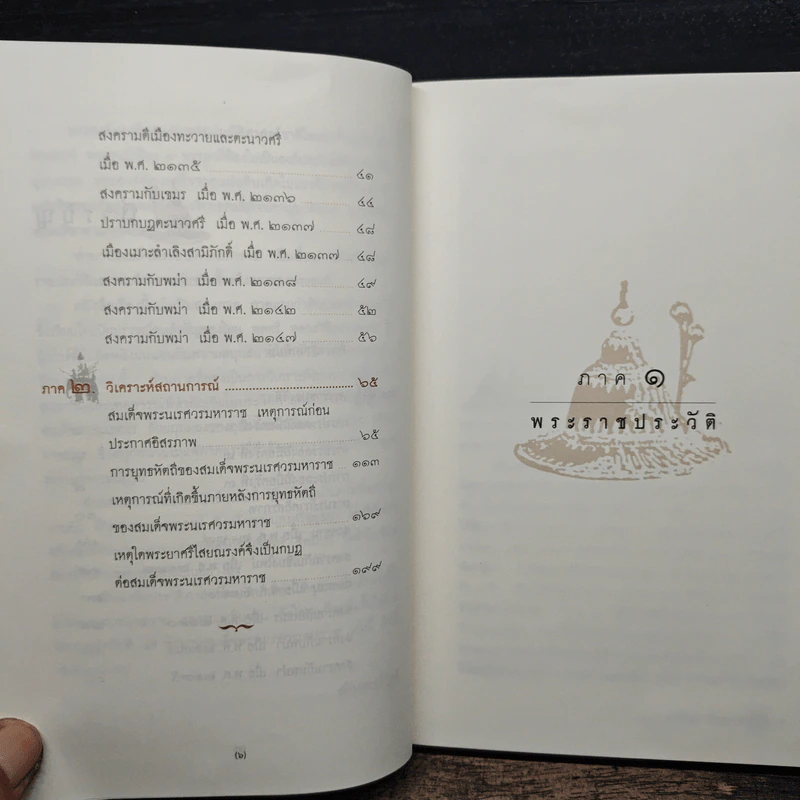 สงครามตีเมืองทะวายและตะนาวศรี
เมื่อ พ.ศ. ๒๑๓๕ ๔๑
สงครามกับเขมร เมื่อ พ.ศ. ๒๑๓๖ ๔๔
ปราบกบฏตะนาวศรี เมื่อ พ.ศ. ๒๑๓๗ ๔๘
เมืองเมาะลำเลิงสามิภักดิ์ เมื่อ พ.ศ. ๒๑๓๗ ๔๘
สงครามกับพม่า เมื่อ พ.ศ. ๒๑๓๘ ๔๙
สงครามกับพม่า เมื่อ พ.ศ. ๒๑๔๒ ๕๒
สงครามกับพม่า เมื่อ พ.ศ. ๒๑๔๗ ๕๖
ภาค ๒. วิเคราะห์สถานการณ์ ๖๕
สมเด็จพระนเรศวรมหาราช เหตุการณ์ก่อน
ประกาศอิสรภาพ ๖๕
การยุทธหัตถีของสมเด็จพระนเรศวรมหาราช ๑๑๓
เหตุการณ์ที่เกิดขึ้นภายหลังการยุทธหัตถี
ของสมเด็จพระนเรศวรมหาราช ๑๖๙
เหตุใดพระยาศรีไสยณรงค์จึงเป็นกบฏ
ต่อสมเด็จพระนเรศวรมหาราช ๑๙๙
(๖)
ภาค ๑
พระราชประวัติ